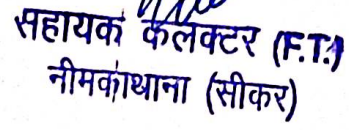 सहायक कलेक्टर (F.T.)
नीमकाथाना (सीकर)